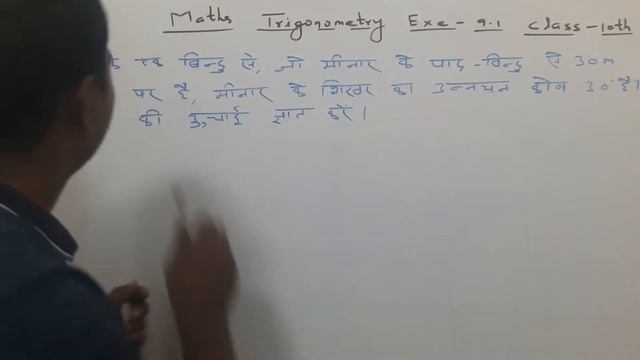 Maths Trigonometry Exe-9.1 Class-10th
के एक बिन्दु से, जो मीनार के पाद-बिन्दु से 30m
पर है, मीनार के शिखर का उन्नयन कोण 30° है।
की ऊंचाई ज्ञात करें।